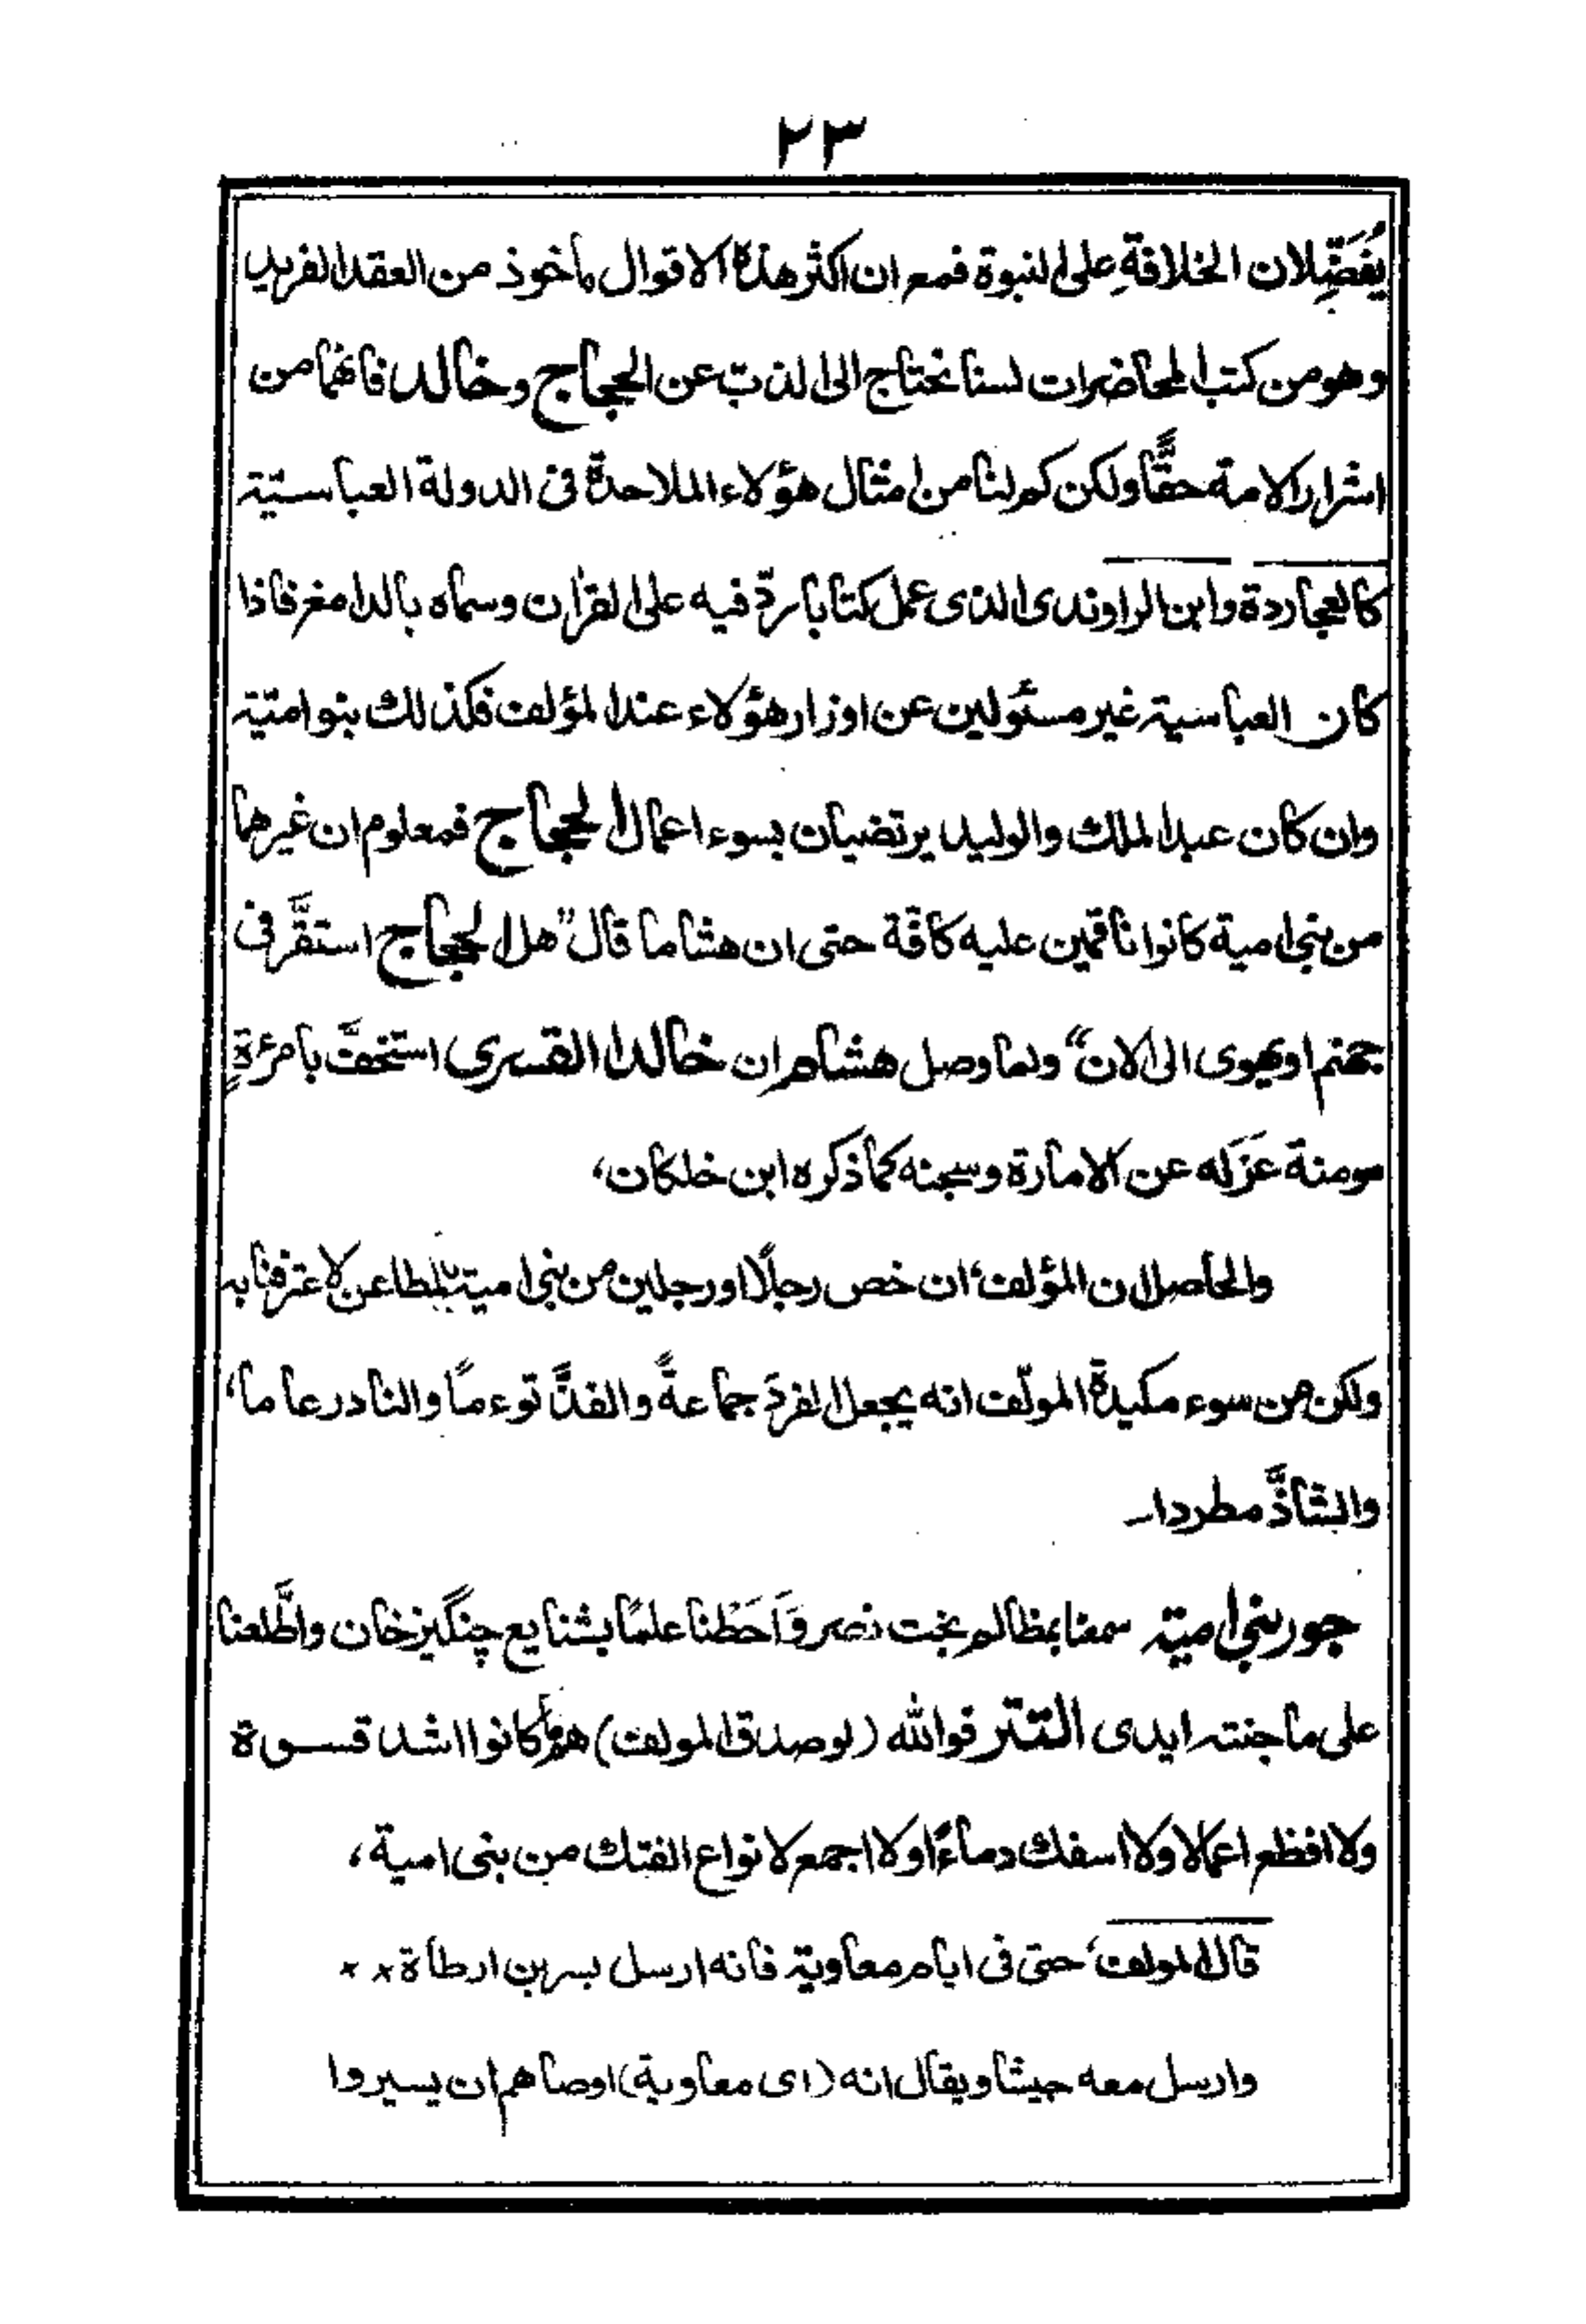 ٢٣
يُفَضِّلان الخلافةِ على النبوة فمع ان اكثر هذه الاقوال مأخوذ من العقد الفريد
وهو من كتب المحاضرات لسنا نحتاج الى الذبّ عن الحجاج وخالد فانهما من
اشرار الامة حقًّا ولكن كم لنا من امثال هؤلاء الملاحدة فى الدولة العباسيّة
كالعجاردة وابن الراوندى الذى عمل كتابا ردّ فيه على القرآن وسماه بالدامغ فاذا
كان العباسية غير مسئولين عن اوزار هؤلاء عند المؤلف فكذلك بنو اميّة
وان كان عبد الملك والوليد يرتضيان بسوء اعمال الحجاج فمعلوم ان غيرهما
من بنى امية كانوا ناقمين عليه كافّة حتى ان هشاما قال "هل الحجاج استقَّر فى
جهنم او يهوى الى الان" ولما وصل هشام ان خالدا القسرى استخفَّ بامرءةٍ
مومنة عَزَلَه عن الامارة وسجنه كما ذكره ابن خلكان،
والحاصل ان المؤلف ان خص رجلًا او رجلين من بنى امية بالمطاعن لاعترفنا به
ولكن من سوء مكيدة المولّف انه يجعل الفردَ جماعةً والفذَّ توءمًا والنادر عاما،
والشاذَّ مطردا۔
جور بنى امية سمعنا بمظالم بخت نصر وَاَحَطْنا علمًا بشنايع چنگيز خان واطَّلعنا
على ما جنته ايدى التتر فوالله (لو صدق المولف) هم ما كانوا اشد قسوة
ولا افظع اعمالا ولا اسفك دماءً ولا اجمع لانواع الفتك من بنى امية،
قال المولف، حتى فى ايام معاوية فانه ارسل بسر بن ارطاة × ×
وارسل معه جيشا ويقال انه (اى معاوية) اوصاهم ان يسيروا